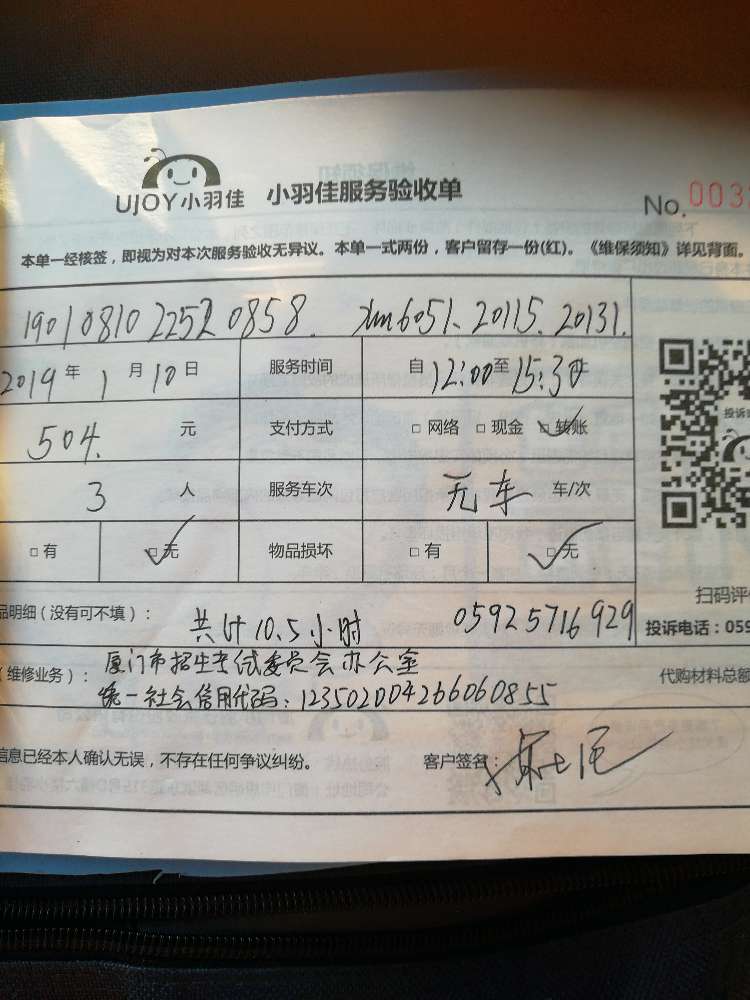 UJOY小羽佳 小羽佳服务验收单 No. 003
本单一经核签，即视为对本次服务验收无异议。本单一式两份，客户留存一份(红)。《维保须知》详见背面。
1901081022520858. xm6051. 20115. 20131.
2019年1月10日 服务时间 自12:00至15:30
504. 元 支付方式 □网络 □现金 □转账
3 人 服务车次 无车 车/次
□有 □无 物品损坏 □有 □无
扫码评
品明细（没有可不填）： 共计10.5小时 05925716929
投诉电话：059
（维修业务）： 厦门市招生考试委员会办公室
统一社会信用代码：123502004266060855
代购材料总额
信息已经本人确认无误，不存在任何争议纠纷。 客户签名：